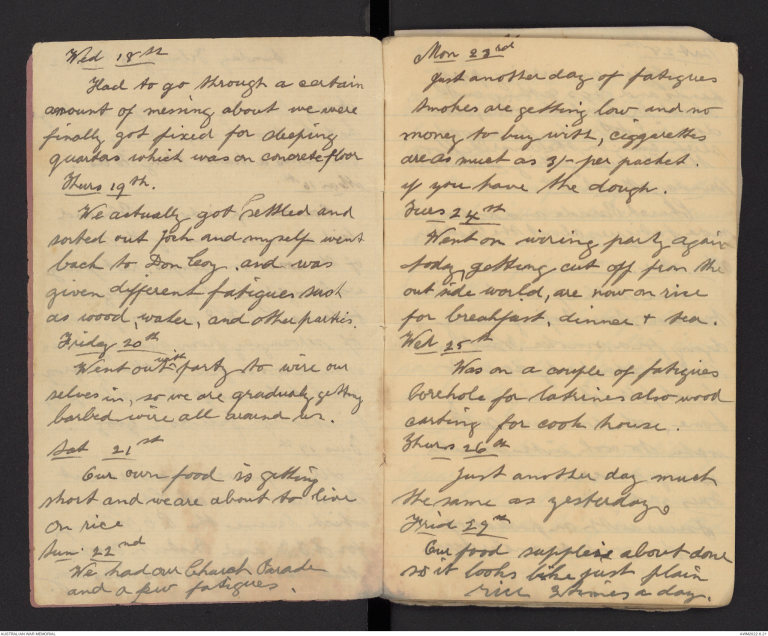 Wed 18th
Had to go through a certain
amount of messing about we were
finally got fixed for sleeping
quartas which was on concrete floor
Thurs 19th.
We actually got settled and
sorted out Jock and myself went
back to Don Coy. and was
given different fatigues such
as wood, water, and other parties.
Friday 20th
Went out with party to wire our
selves in, so we are gradualy getting
barbed wire all around us.
Sat 21st
Our own food is getting
short and we are about to live
on rice
Sun: 22nd
We had our Church Parade
and a few fatigues.
Mon 23rd
Just another day of fatigues
smokes are getting low and no
money to buy with, ciggerettes
are as much as 3/- per packet.
if you have the dough.
Tues 24th
Went on wiring party again
today, getting cut off from the
out side world, are now on rice
for breakfast, dinner + tea.
Wed 25th
Was on a couple of fatigues
borehole for latrines also wood
carting for cook house.
Thurs 26th
Just another day much
the same as yesterday.
Frid 27th
Our food supplie is about done
so it looks like just plain
rice 3 times a day.
AUSTRALIAN WAR MEMORIAL